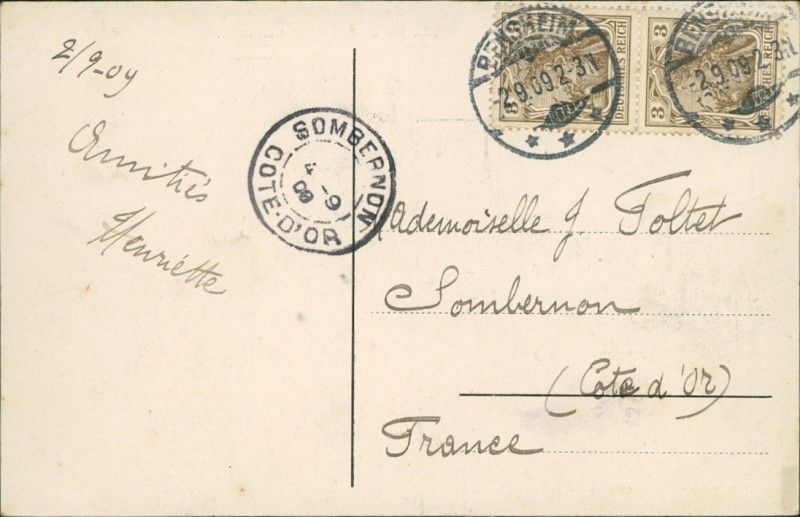 2/9-09
Amitiés
Henriette
SOMBERNON
4 -9
09
COTE-D'OR
BENSHEIM
-2.9.09.2-3N.
DEUTSCHES REICH
3
BENSHEIM
-2.9.09.2-3N.
3
Mademoiselle J. Foltet
Sombernon
(Cote d'Or)
France